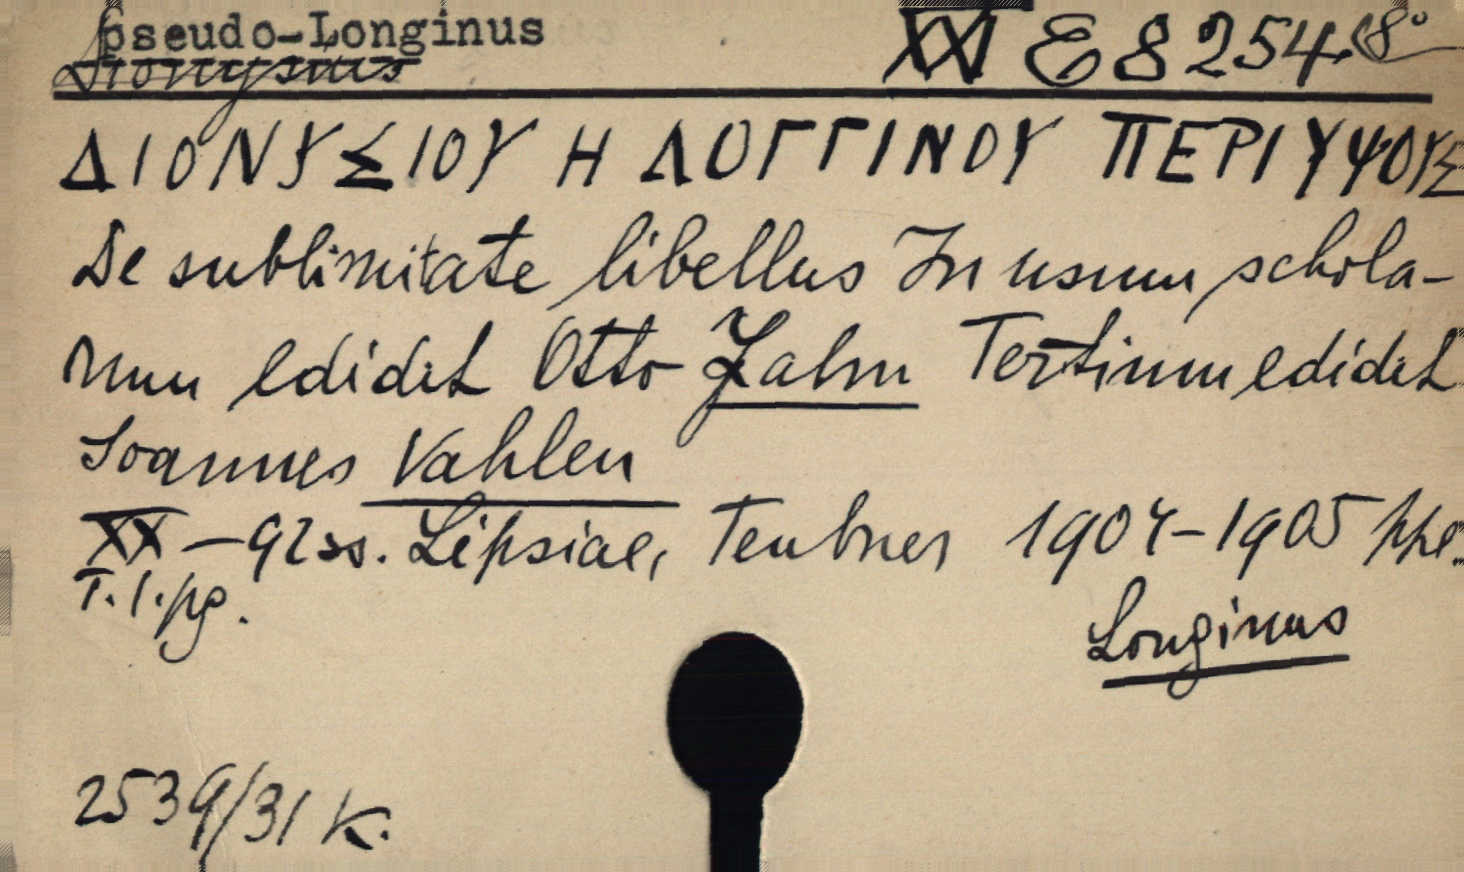 pseudo-Longinus XXI E 8254. (8°
Dionysius
ΔΙΟΝΥΣΙΟΥ Η ΛΟΓΓΙΝΟΥ ΠΕΡΙ ΥΨΟΥΣ
De sublimitate libellus In usum schola-
rum edidit Otto Jahn Tertium edidit
Ioannes Vahlen
XX – 92 ss. Lipsiae, Teubner 1904-1905
T. 1. pg.
Longinus
2539/31 K.